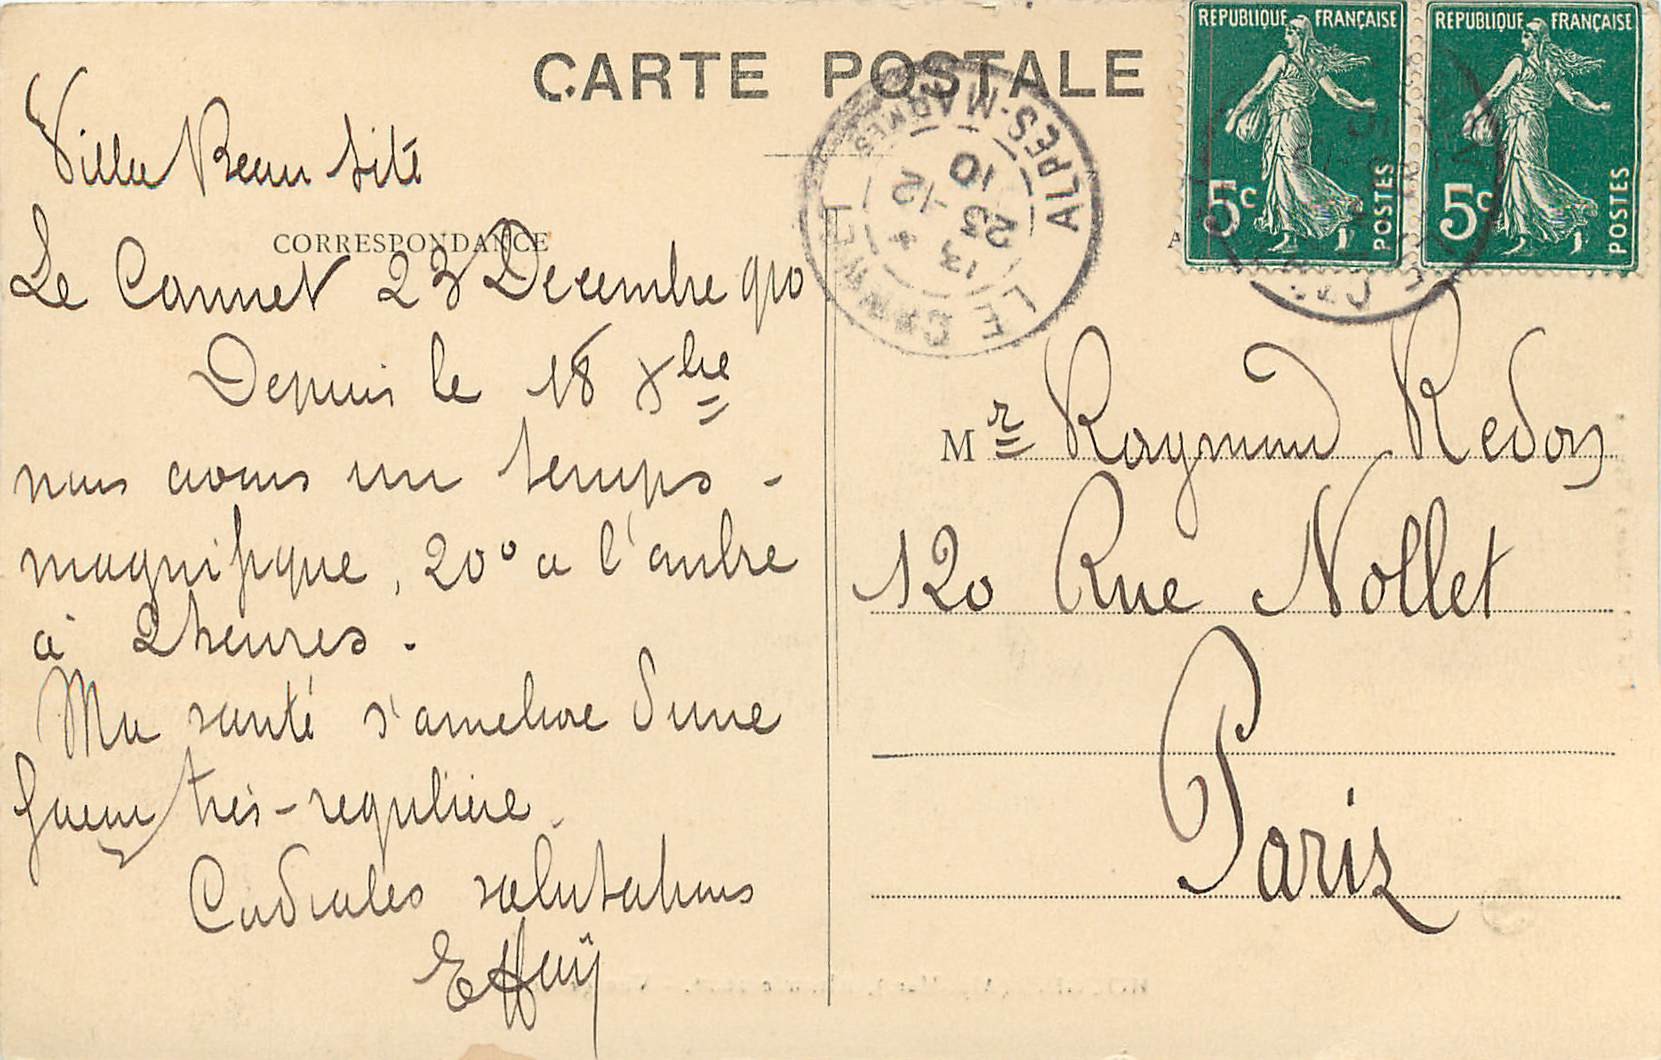 CARTE POSTALE
Villa Beau Sité
CORRESPONDANCE
Le Cannet 23 Decembre 910
Depuis le 18 Xbre
nous avons un temps -
magnifique, 20° a l'ombre
à 2 heures.
Ma santé s'ameliore d'une
façon très-regulière.
Cordiales salutations
REPUBLIQUE FRANÇAISE
5c
POSTES
REPUBLIQUE FRANÇAISE
5c
POSTES
LE CANNET
13 4
23 -12
10
ALPES-MARMES
A
Mr Raymond Redon
120 Rue Nollet
Paris